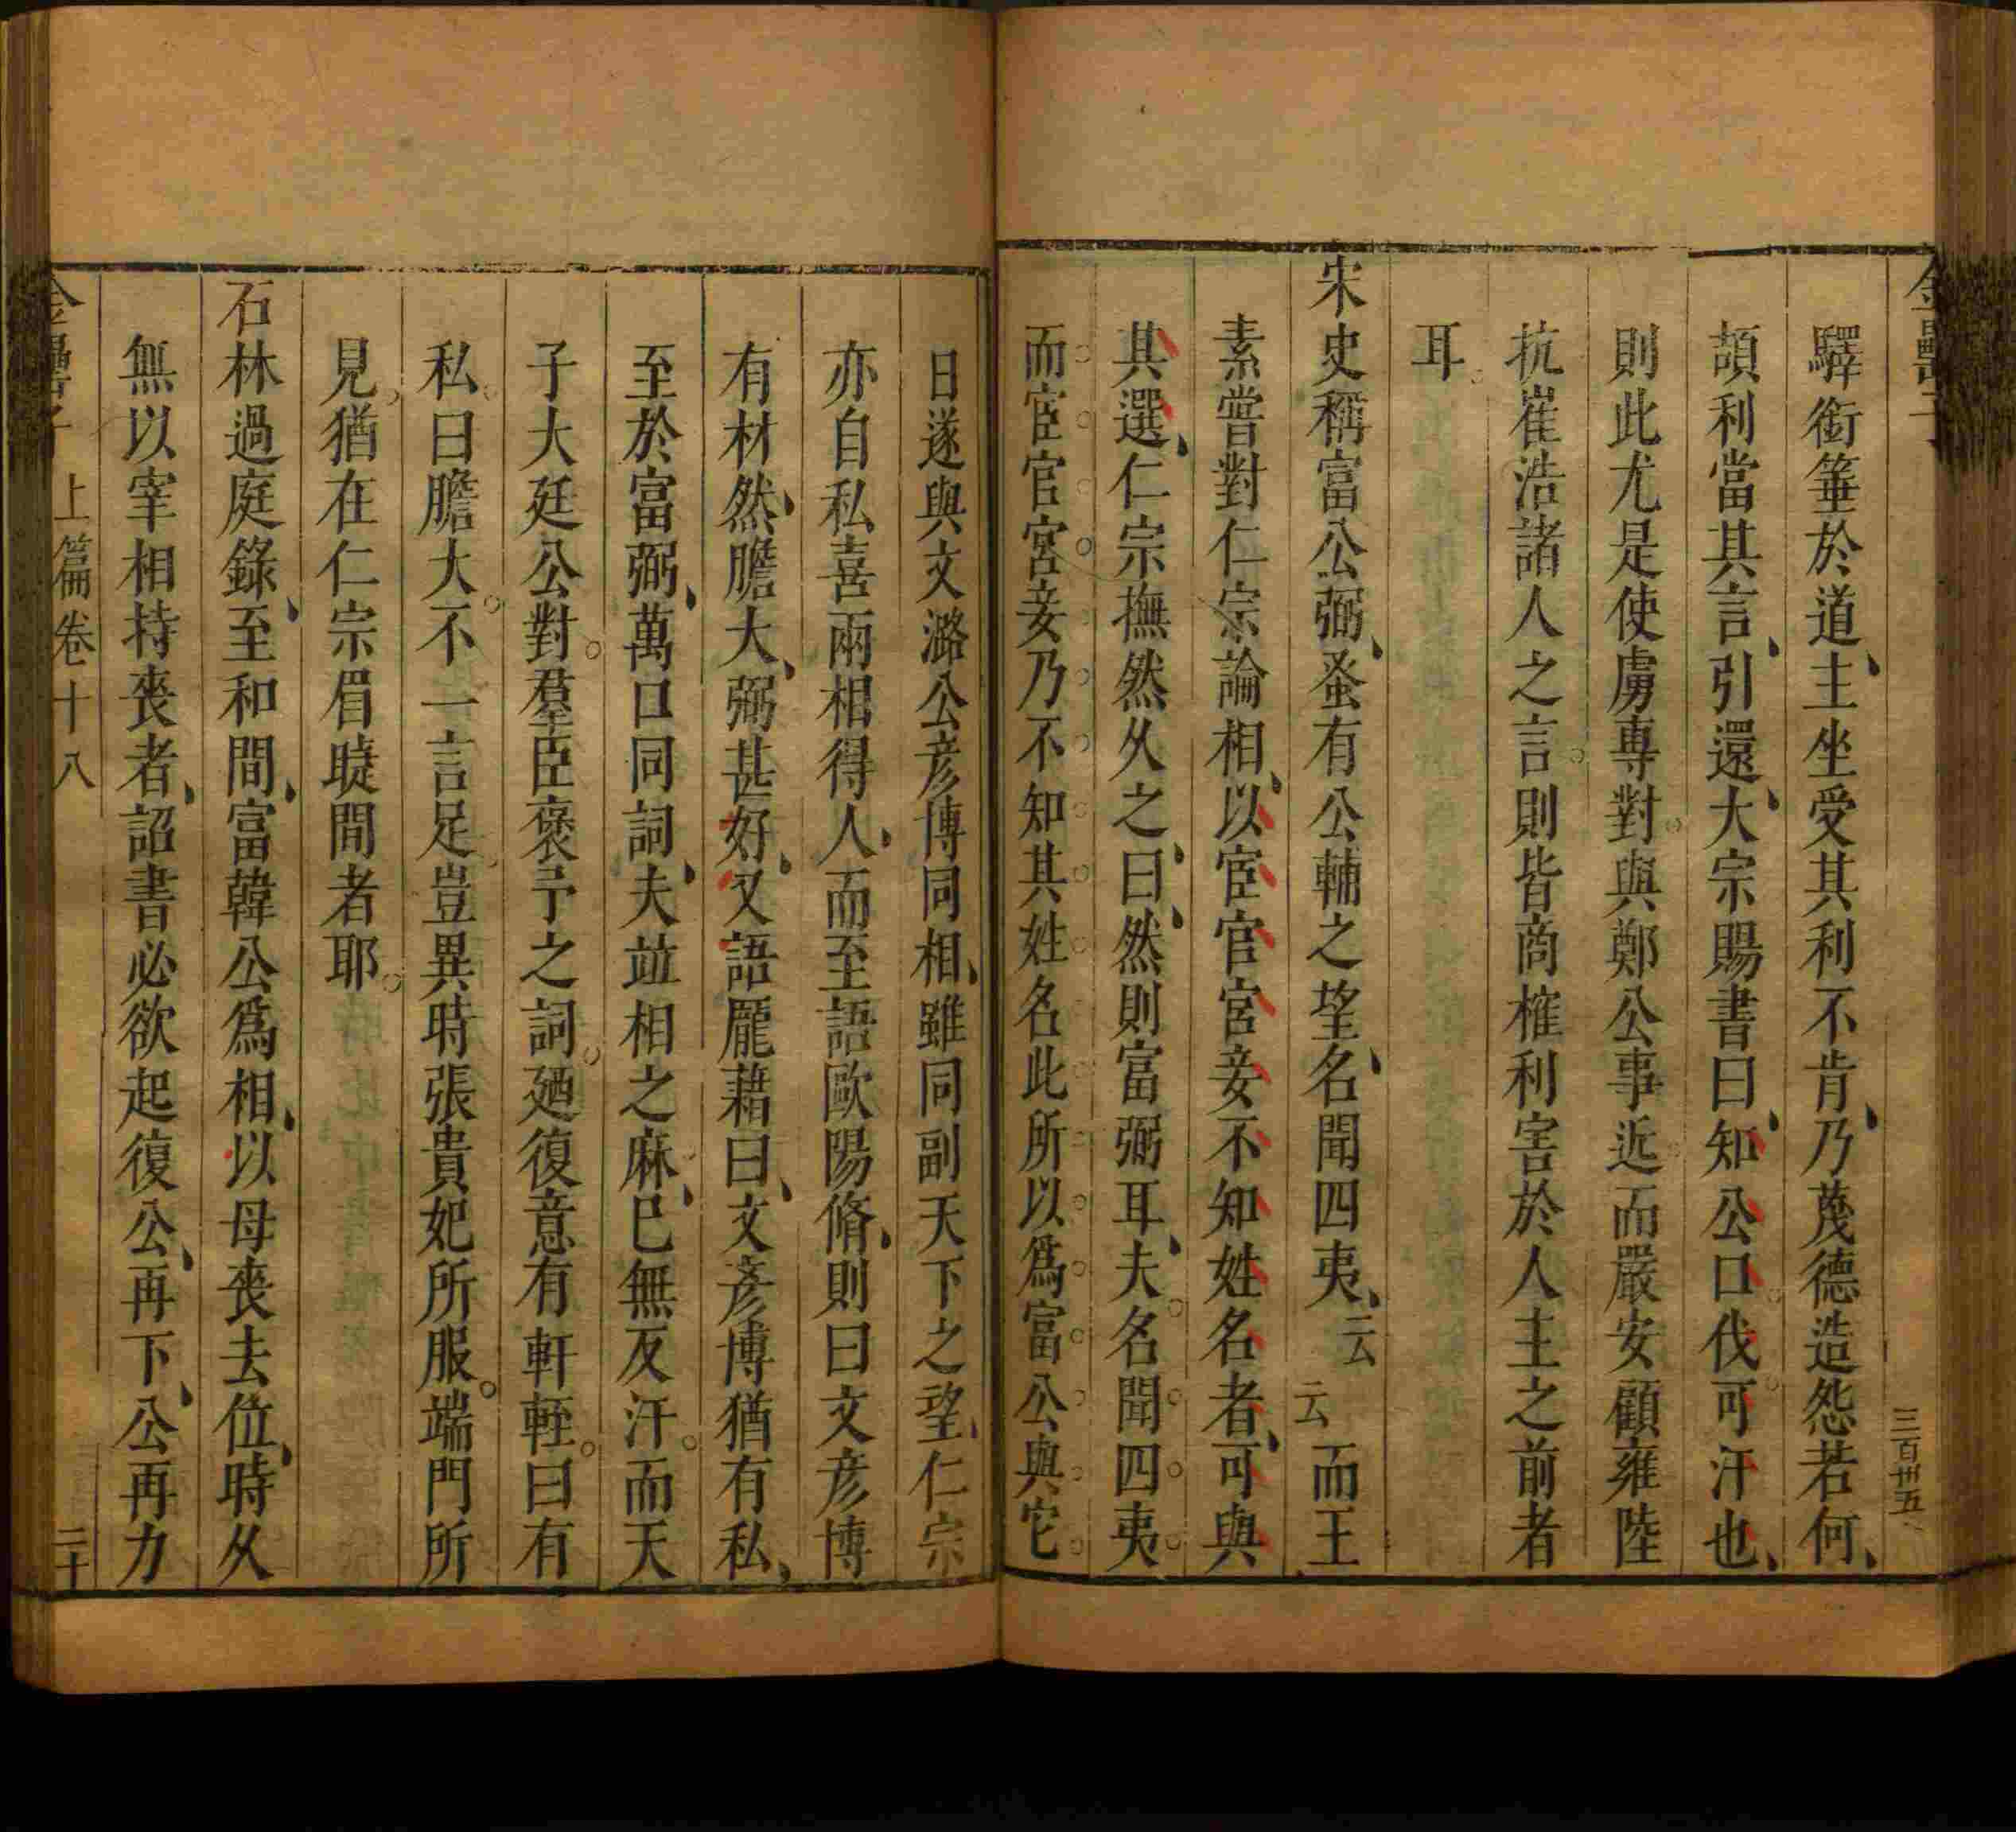 驛銜箠於道主坐受其利不肯乃蔑德造怨若何
頡利當其言引還大宗賜書曰知公口伐可汗也
則此尤是使虜專對與鄭公事近而嚴安顧雍陸
抗崔浩諸人之言則皆商榷利害於人主之前者
耳
宋史稱富公弼蚤有公輔之望名聞四夷云云而王
素嘗對仁宗論相以宦官宮妾不知姓名者可與
其選仁宗撫然久之曰然則富弼耳夫名聞四夷
而宦官宮妾乃不知其姓名此所以為富公與它
日遂與文潞公彥博同相雖同副天下之望仁宗
亦自私喜兩相得人而至語歐陽脩則曰文彥博
有材然膽大弼甚好又語龐藉曰文彥博猶有私
至於富弼萬口同詞夫竝相之麻已無反汗而天
子大廷公對羣臣褒予之詞廼復意有軒輊曰有
私曰膽大不一言足豈異時張貴妃所服端門所
見猶在仁宗眉睫間者耶
石林過庭錄至和間富韓公爲相以母喪去位時久
無以宰相持喪者詔書必欲起復公再下公再力
金罍子 上篇卷十八 二十
三百卅五